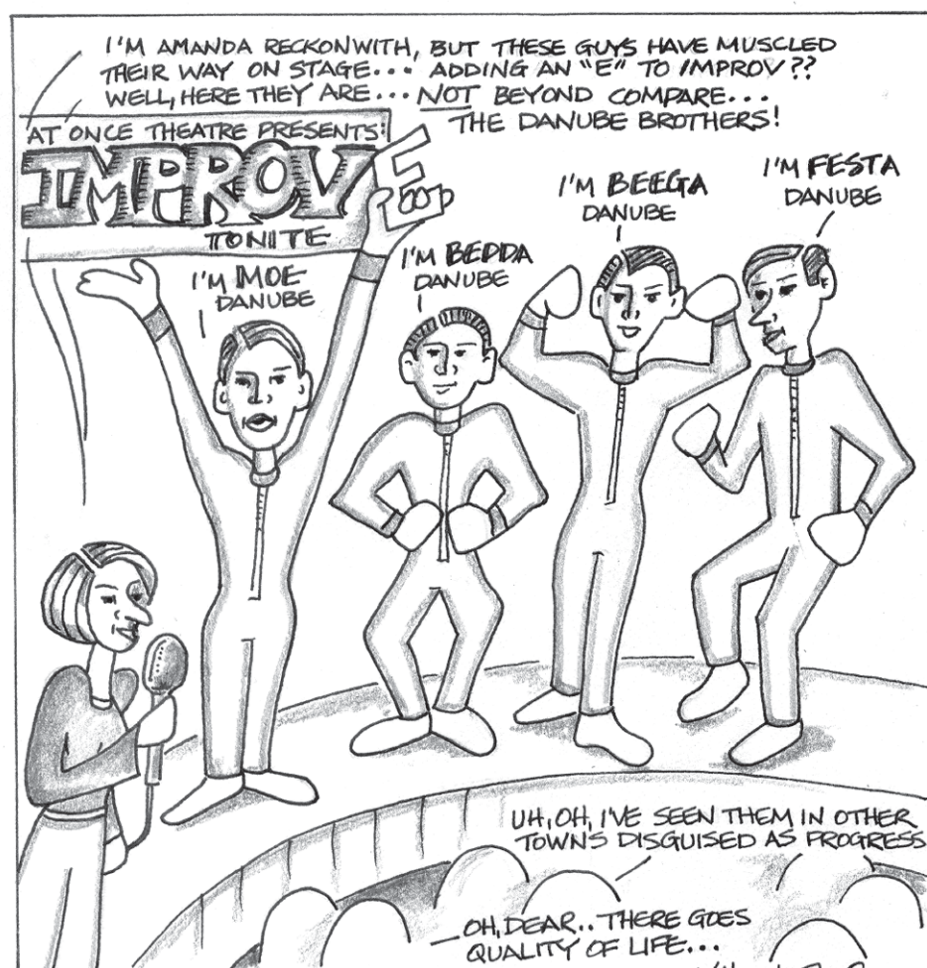 I'M AMANDA RECKONWITH, BUT THESE GUYS HAVE MUSCLED
THEIR WAY ON STAGE... ADDING AN "E" TO IMPROV??
WELL, HERE THEY ARE... NOT BEYOND COMPARE...
THE DANUBE BROTHERS!
AT ONCE THEATRE PRESENTS:
IMPROVE
TONITE
I'M MOE
DANUBE
I'M BEDDA
DANUBE
I'M BEEGA
DANUBE
I'M FESTA
DANUBE
UH, OH, I'VE SEEN THEM IN OTHER
TOWNS DISGUISED AS PROGRESS
OH, DEAR.. THERE GOES
QUALITY OF LIFE...